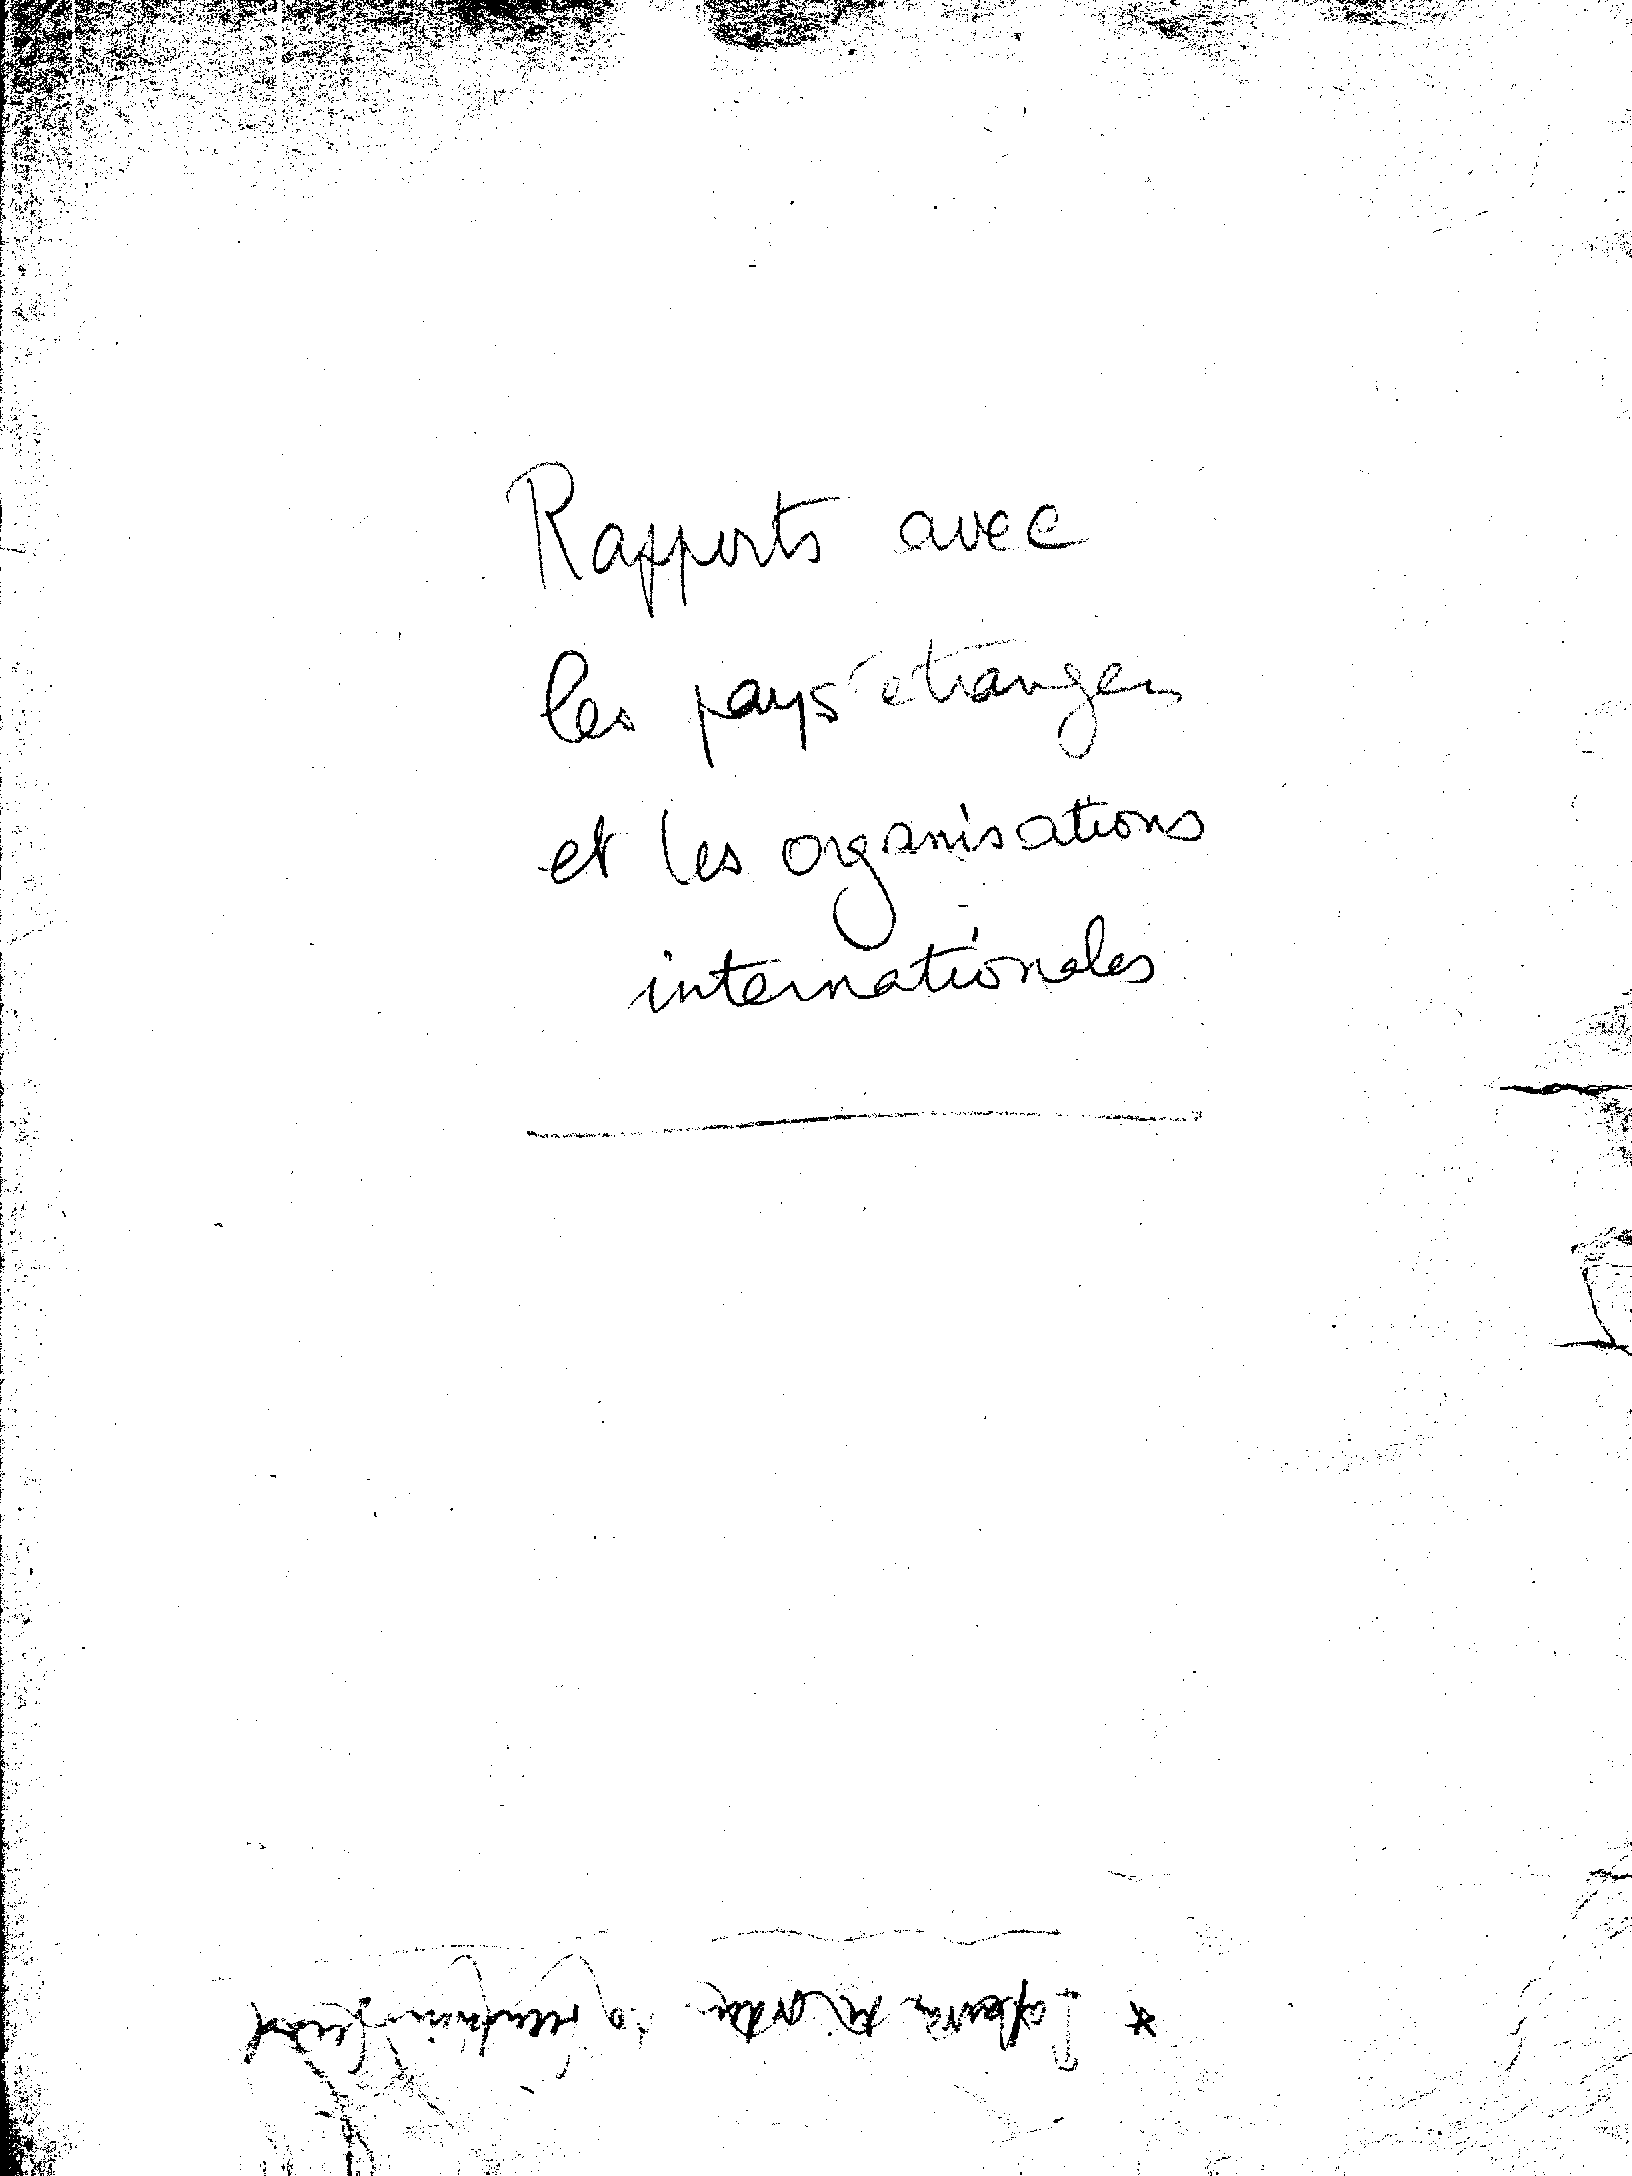 Rapports avec
les pays étrangers
et les organisations
internationales